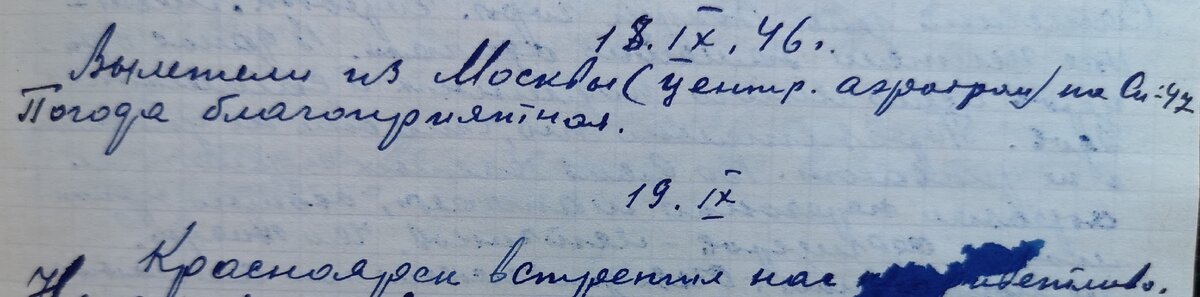 18. IX. 46г.
Вылетели из Москвы (центр. аэродром) на Си-47
Погода благоприятная.
19. IX
Красноярск встретил нас